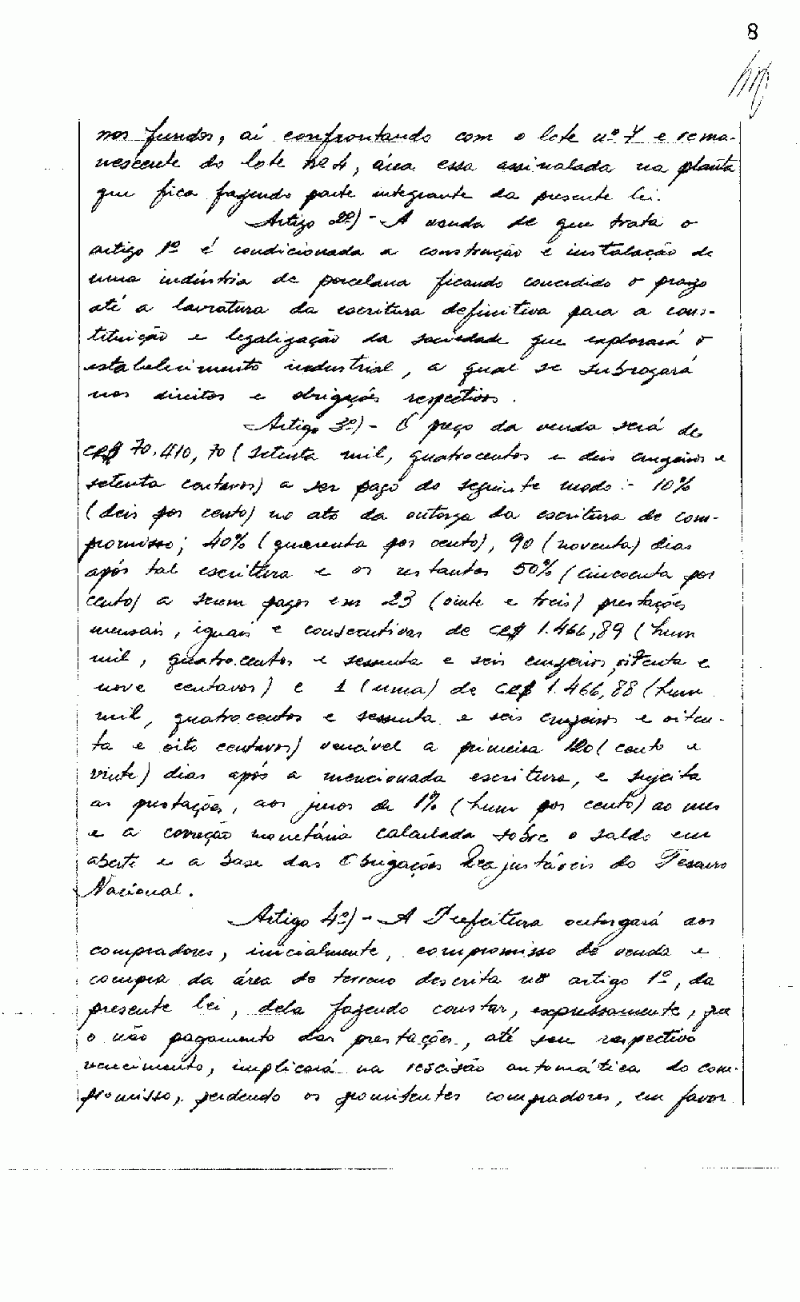 8
nos fundos, aí confrontando com o lote nº 7 e rema-
nescente do lote nº 4, área essa assinalada na planta
que fica fazendo parte integrante da presente lei.
Artigo 2º)- A venda de que trata o
artigo 1º é condicionada a construção e instalação de
uma indústria de porcelana ficando concedido o prazo
até a lavratura da escritura definitiva para a cons-
tituição e legalização da sociedade que explorará o
estabelecimento industrial, a qual se subrogará
nos direitos e obrigações respectivos.
Artigo 3º)- O preço da venda será de
CR$ 70.410,70 (setenta mil, quatrocentos e dez cruzeiros e
setenta centavos) a ser pago do seguinte modo:- 10%
(dez por cento) no ato da outorga da escritura de com-
promisso; 40% (quarenta por cento), 90 (noventa) dias
após tal escritura e os restantes 50% (cincoenta por
cento) a serem pagos em 23 (vinte e treis) prestações
mensais, iguais e consecutivas de CR$ 1.466,89 (hum
mil, quatrocentos e sessenta e seis cruzeiros, oitenta e
nove centavos) e 1 (uma) de CR$ 1.466,88 (hum
mil, quatrocentos e sessenta e seis cruzeiros e oiten-
ta e oito centavos) vencível a primeira 120 (cento e
vinte) dias após a mencionada escritura, e sujeita
as prestações, aos juros de 1% (hum por cento) ao mes
e a correção monetária calculada sobre o saldo em
aberto e a base das Obrigações Reajustáveis do Tesouro
Nacional.
Artigo 4º)- A Prefeitura outorgará aos
compradores, inicialmente, compromisso de venda e
compra da área de terreno descrita no artigo 1º, da
presente lei, dela fazendo constar, expressamente, que
o não pagamento das prestações, até seu respectivo
vencimento, implicará na rescisão automática do com-
promisso, perdendo os promitentes compradores, em favor